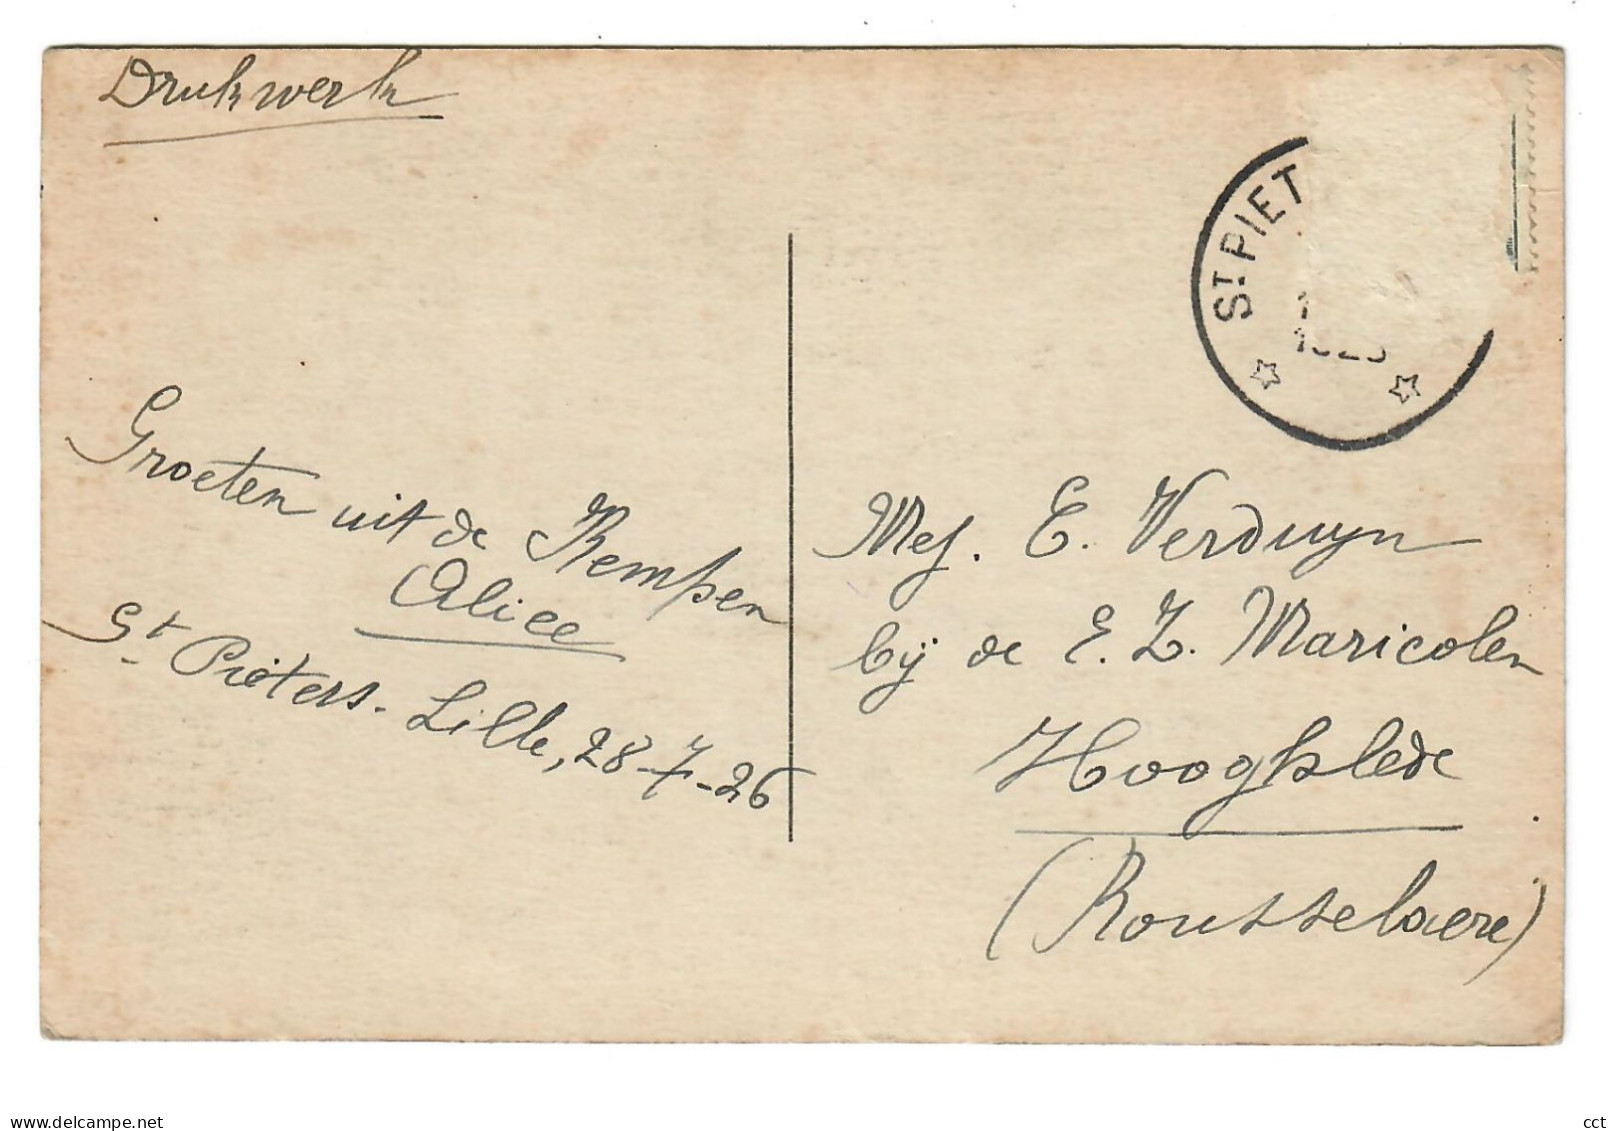 Drukwerk
ST PIET
Groeten uit de Kempen
Alice
St Pieters-Lille, 28-7-26
Mej. E. Verduyn
bij de E. Z. Maricolen
Hooghlede
(Rousselaere)
delcampe.net
cct